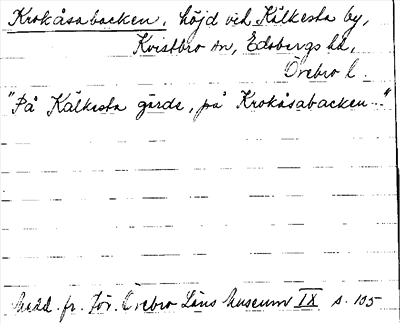 Krokåsabacken, höjd vid Kälkesta by,
Kvistbro sn, Edsbergs hd,
Örebro l.
"På Kälkesta gärde, på Krokåsabacken..."
Medd. fr. För. Örebro Läns Museum IX s. 105